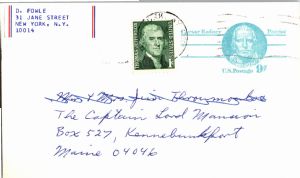 D. FOWLE
31 JANE STREET
NEW YORK, N.Y.
10014
Caesar Rodney Patriot
U.S. Postage 9¢
The Captain Lord Mansion
Box 527, Kennebunkport
Maine 04046